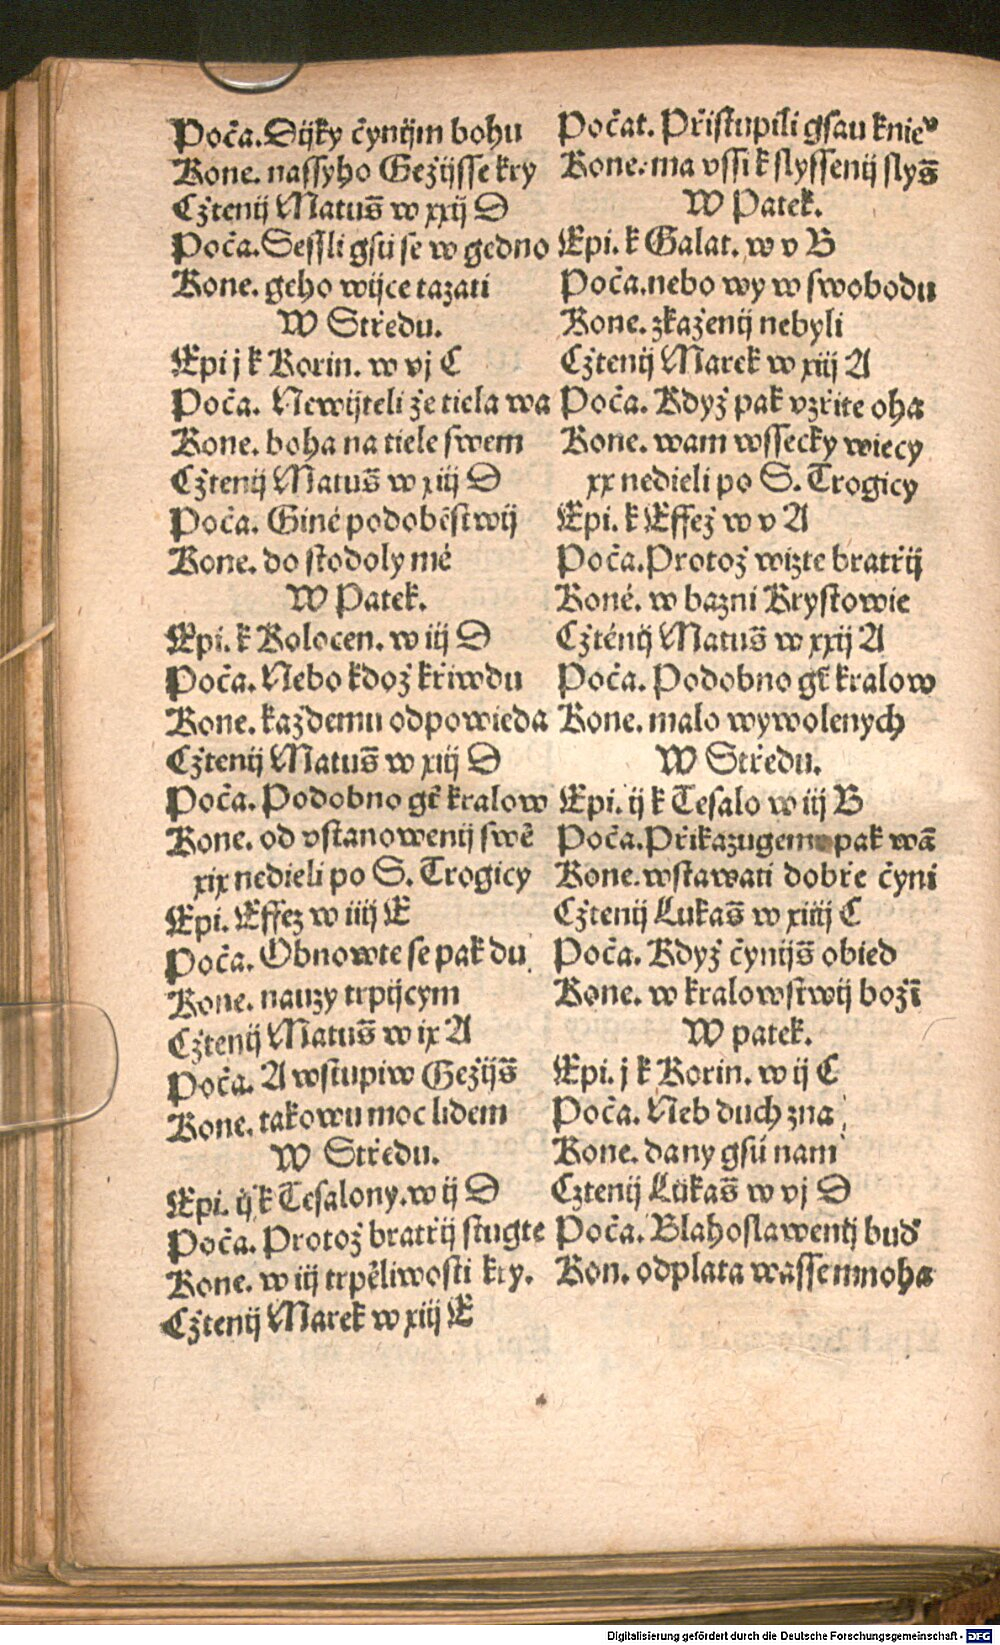 Poča. Dijky čynijm bohu
Kone. nassyho Gežijsse kry
Cžtenij Matus̄ w xxij D
Poča. Sessli gsú se w gedno
Kone. geho wijce tazati
W Středu.
Epi j k Korin. w vj C
Poča. Newijteli že tiela wa
Kone. boha na tiele swem
Cžtenij Matus̄ w xiij D
Poča. Giné podobēstwij
Kone. do stodoly mé
W Patek.
Epi. k Kolocen. w iij D
Poča. Nebo kdož křiwdu
Kone. každemu odpowieda
Cžtenij Matus̄ w xiij D
Poča. Podobno gt̄ kralow
Kone. od vstanowenij swē
xix nedieli po S. Trogicy
Epi. Effez w iiij E
Poča. Obnowte se pak du
Kone. nauzy trpijcym
Cžtenij Matus̄ w ix A
Poča. A wstupiw Gežijs̄
Kone. takowu moc lidem
W Středu.
Epi. ij k Tesalony. w ij D
Poča. Protož bratřij stugte
Kone. w iij trpēliwosti kry.
Cžtenij Marek w xiij E
Počat. Přistupili gsau k nie
Kone. ma vssi k slyssenij slys̄
W Patek.
Epi. k Galat. w v B
Poča. nebo wy w swobodu
Kone. zkaženij nebyli
Cžtenij Marek w xiij A
Poča. Když pak vzřite oha
Kone. wam wssecky wiecy
xx nedieli po S. Trogicy
Epi. k Effež w v A
Poča. Protož wizte bratřij
Koné. w bazni Krystowie
Cžténij Matus̄ w xxij A
Poča. Podobno gt̄ kralow
Kone. malo wywolenych
W Středu.
Epi. ij k Tesalo w iij B
Poča. Přikazugem pak wā
Kone. wstawati dobře čyni
Cžtenij Lukas̄ w xiiij C
Poča. Když čynijs̄ obied
Kone. w kralowstwij božī
W patek.
Epi. j k Korin. w ij C
Poča. Neb duch zna
Kone. dany gsú nam
Cztenij Lukas̄ w vj D
Poča. Blahoslawenij buď
Kon. odplata wasse mnoha
Digitalisierung gefördert durch die Deutsche Forschungsgemeinschaft - DFG